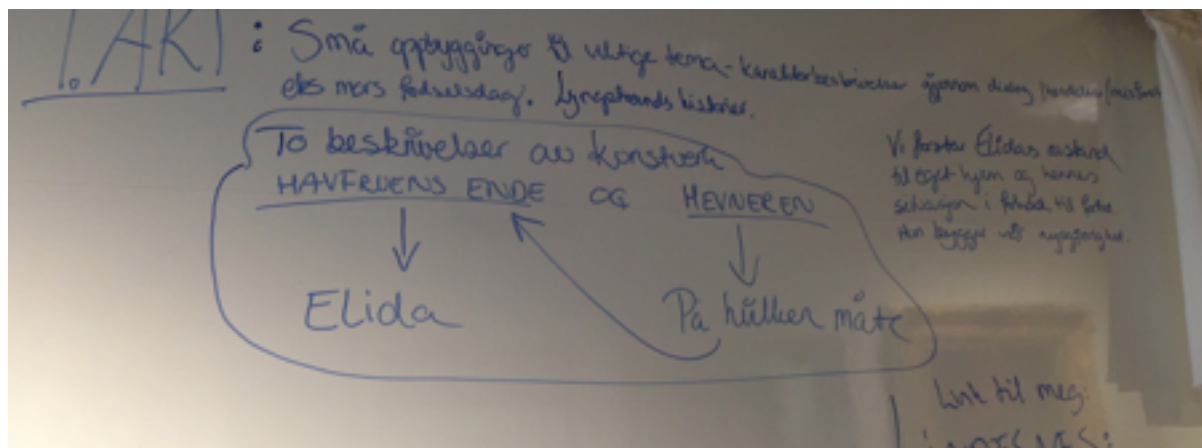 1. AKT : Små oppbygginger til viktige tema - karakterbeskrivelser gjennom dialog
mors fødselsdag. Lyngstrands historier.
To beskrivelser av konstverk
HAVFRUENS ENDE OG HEVNEREN
Elida
På hvilken måte
Vi forstår Elidas avstand
til eget hjem og hennes
situasjon i forhold til
Hun bygger vår nysgjerrighet.
Link til meg: